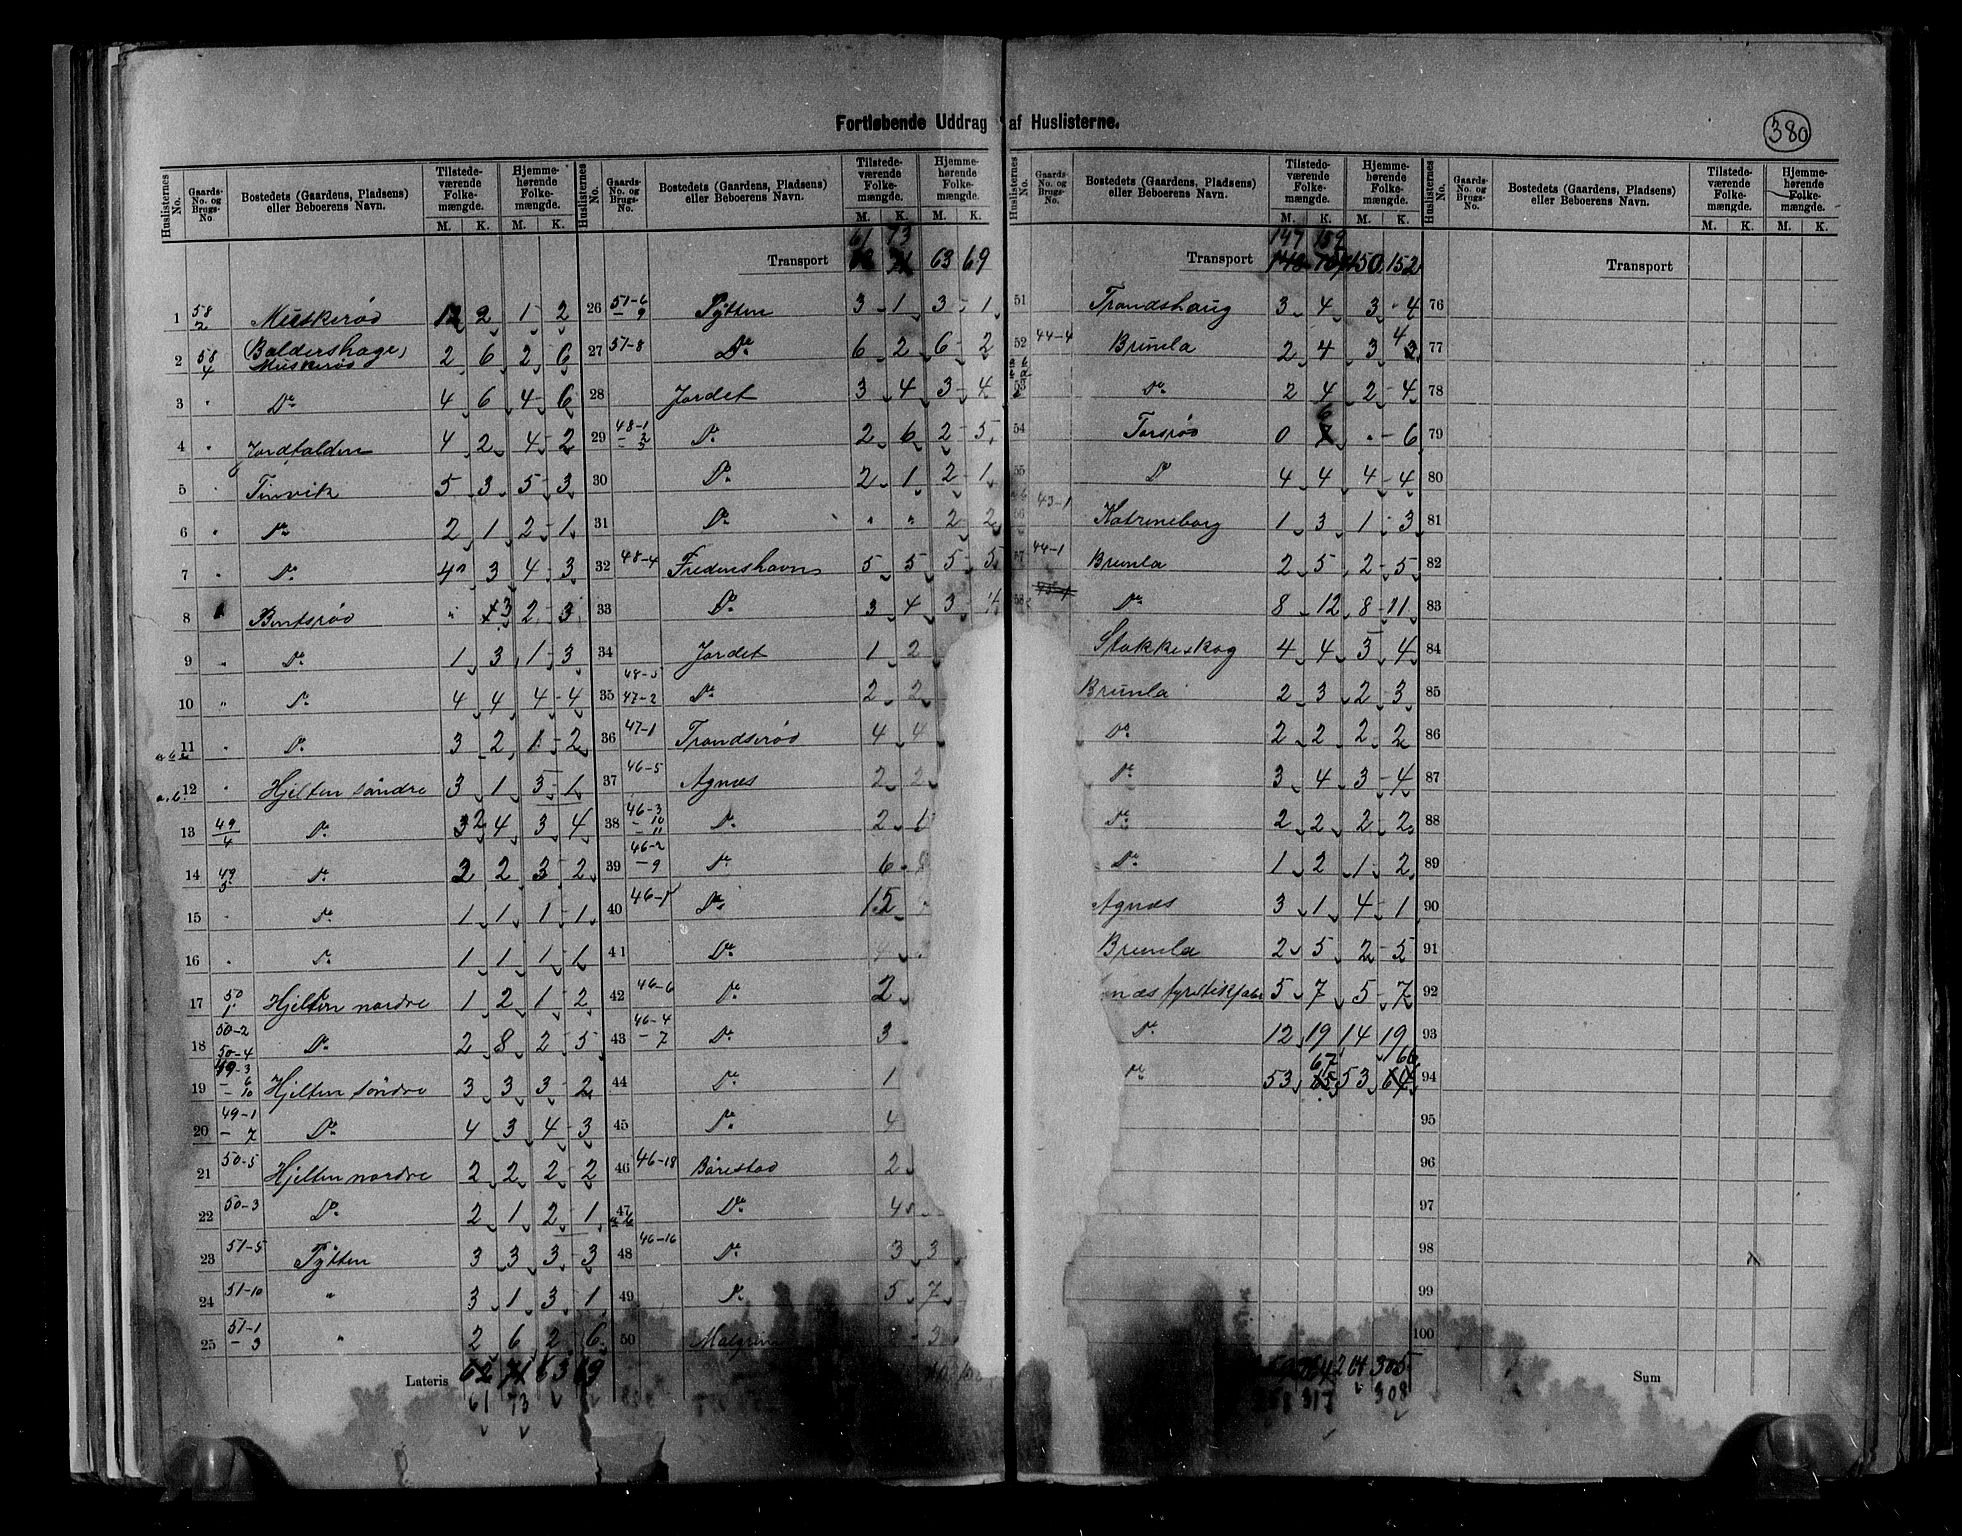 Fortløbende Uddrag af Huslisterne.
380
Huslisternes No. | Gaards-No. og Brugs-No. | Bostedets (Gaardens, Pladsens) eller Beboerens Navn. | Tilstedeværende Folkemængde. M. K. | Hjemmehørende Folkemængde. M. K.
1 58/2 Muskerød 2 1 2
2 58/4 (Baldershage) Muskerød 2 6 2 6
3 " Do 4 6 4 6
4 " Jordfalden 4 2 4 2
5 " Tinvik 5 3 5 3
6 " Do 2 1 2 1
7 " Do 4 3 4 3
8 Bentsrød " 3 2 3
9 " Do 1 3 1 3
10 " Do 4 4 4 4
11 " Do 3 2 1 2
12 " Hjelten søndre 3 1 3 1
13 49/4 Do 2 4 3 4
14 49 Do 2 2 3 2
15 " Do 1 1 1 1
16 " Do 1 1 1 1
17 50/1 Hjelten nordre 1 2 1 2
18 50-2 50-4 Do 2 8 2 5
19 49-3 -6 -10 Hjelten søndre 3 3 3 2
20 49-1 -7 Do 4 3 4 3
21 50-5 Hjelten nordre 2 2 2 2
22 50-3 Do 2 1 2 1
23 51-5 Pytten 3 3 3 3
24 51-10 " 3 1 3 1
25 51-1 -3 " 2 6 2 6
Lateris 62 71 63 69
61 73
Huslisternes No. | Gaards-No. og Brugs-No. | Bostedets (Gaardens, Pladsens) eller Beboerens Navn. | Tilstedeværende Folkemængde. M. K. | Hjemmehørende Folkemængde. M. K.
61 73
Transport 63 69
26 51-6 -9 Pytten 3 1 3 1
27 51-8 Do 6 2 6 2
28 Jordet 3 4 3 4
29 48-1 Do 2 6 2 5
30 Do 2 1 2 1
31 Do " " 2 2
32 48-4 Fredenshavn 5 5 5 5
33 Do 3 4 3
34 Jordet 1 2
35 48-5 47-2 Do 2 2
36 47-1 Trondserød 4 4
37 46-5 Agnæs 2 2
38 46-3 -10 -11 Do 2 1
39 46-2 -9 Do 6
40 46-1 Do 15
41 Do
42 46-6 Do 2
43 46-4 -7 Do 3
44 Do 1
45 Do 4
46 46-18 Bårestad 2
47 Do 4
48 46-16 Do 3 3
49 Do 5 7
50 3
Huslisternes No. | Gaards-No. og Brugs-No. | Bostedets (Gaardens, Pladsens) eller Beboerens Navn. | Tilstedeværende Folkemængde. M. K. | Hjemmehørende Folkemængde. M. K.
147 159
Transport 150 152
51 Trondshaug 3 4 3 4
52 44-4 Brunla 2 4 3 4
53 Do 2 4 2 4
54 Torsrød 0 6 " 6
55 Do 4 4 4 4
56 43-1 Katrineborg 1 3 1 3
57 44-1 Brunla 2 5 2 5
58 Do 8 12 8 11
Stokkeskog 4 4 3 4
Brunla 2 3 2 3
Do 2 2 2 2
Do 3 4 3 4
Do 2 2 2 2
Do 1 2 1 2
Agnæs 3 1 4 1
Brunla 2 5 2 5
næs 5 7 5 7
Do 12 19 14 19
Do 53 67 53 66
264 305
317 308
Huslisternes No. | Gaards-No. og Brugs-No. | Bostedets (Gaardens, Pladsens) eller Beboerens Navn. | Tilstedeværende Folkemængde. M. K. | Hjemmehørende Folkemængde. M. K.
Transport
76
77
78
79
80
81
82
83
84
85
86
87
88
89
90
91
92
93
94
95
96
97
98
99
100
Sum